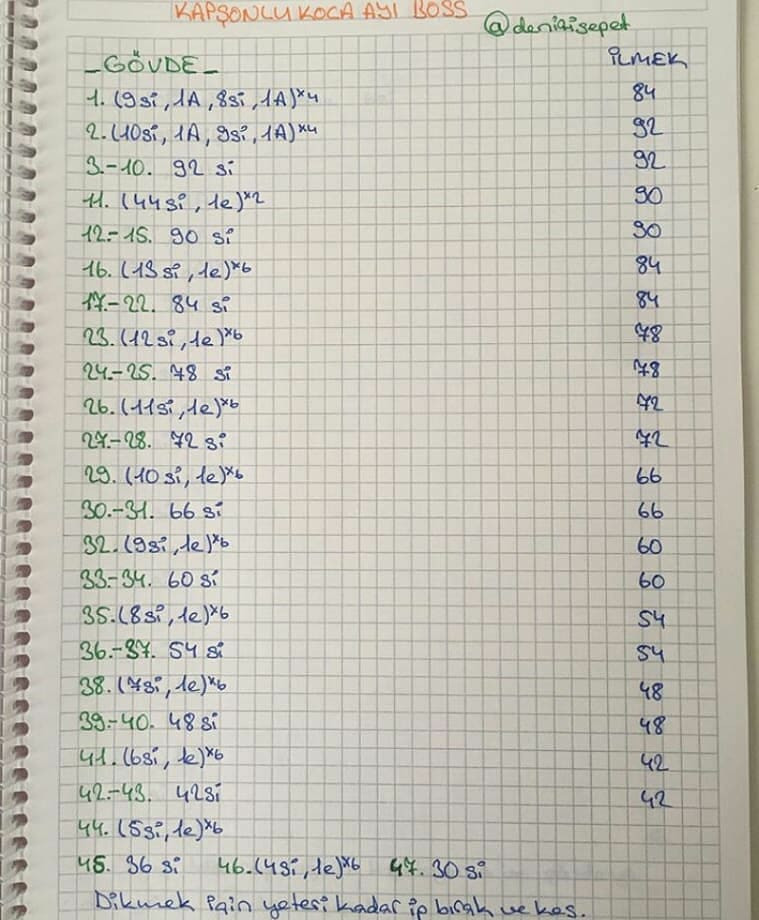 KAPŞONLU KOCA AYI BOSS
@denizisepet
_GÖVDE_ İLMEK
1. (9si, 1A, 8si, 1A)x4 84
2. (10si, 1A, 9si, 1A)x4 92
3.-10. 92 si 92
11. (44si, 1e)x2 90
12.-15. 90 si 90
16. (13si, 1e)x6 84
17.-22. 84 si 84
23. (12si, 1e)x6 78
24.-25. 78 si 78
26. (11si, 1e)x6 72
27.-28. 72 si 72
29. (10si, 1e)x6 66
30.-31. 66 si 66
32. (9si, 1e)x6 60
33.-34. 60 si 60
35. (8si, 1e)x6 54
36.-37. 54 si 54
38. (7si, 1e)x6 48
39.-40. 48 si 48
41. (6si, 1e)x6 42
42.-43. 42si 42
44. (5si, 1e)x6
45. 36 si 46. (4si, 1e)x6 47. 30 si
Dikmek için yetesi kadar ip bırak ve kes.